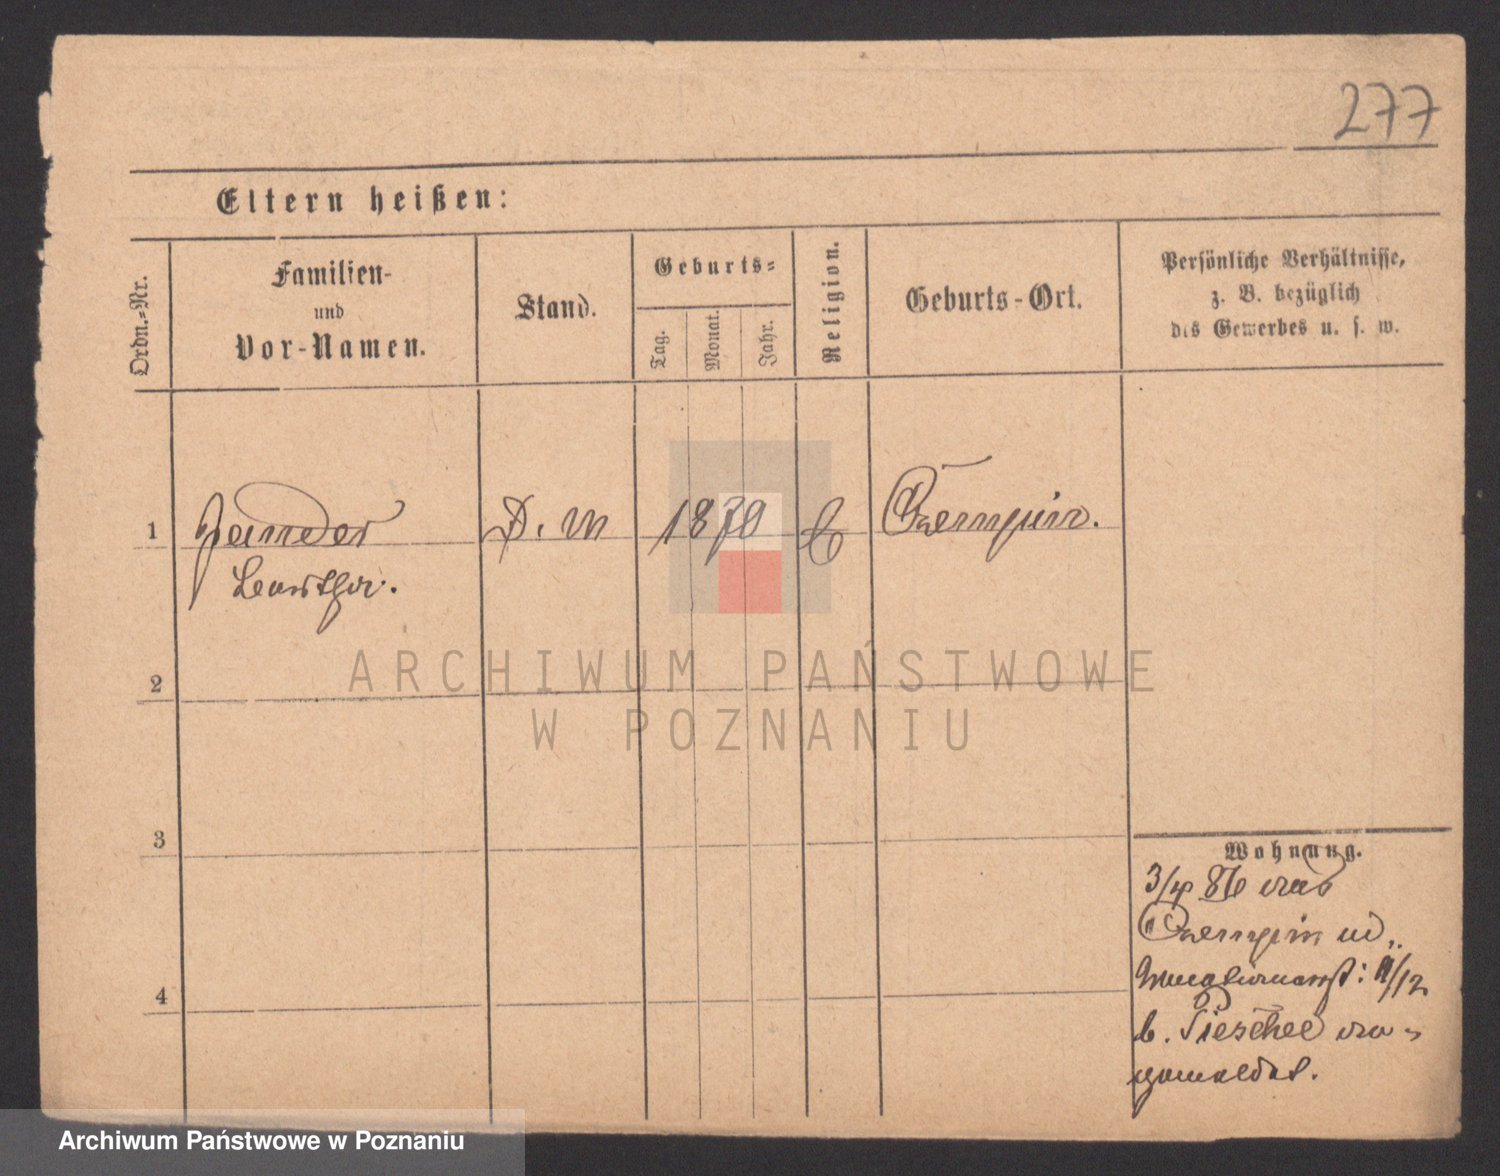 277
Eltern heißen:
Ordn.-Nr.
Familien-
und
Vor-Namen.
Stand.
Geburts-
Tag.
Monat.
Jahr.
Religion.
Geburts-Ort.
Persönliche Verhältnisse,
z. B. bezüglich
des Gewerbes u. s. w.
1
D. M
1870
Czempin.
2
3
4
Wohnung.
3/4 86
Czempin
4/12
b. Pieschel
gemeldet.
ARCHIWUM PAŃSTWOWE
W POZNANIU
Archiwum Państwowe w Poznaniu